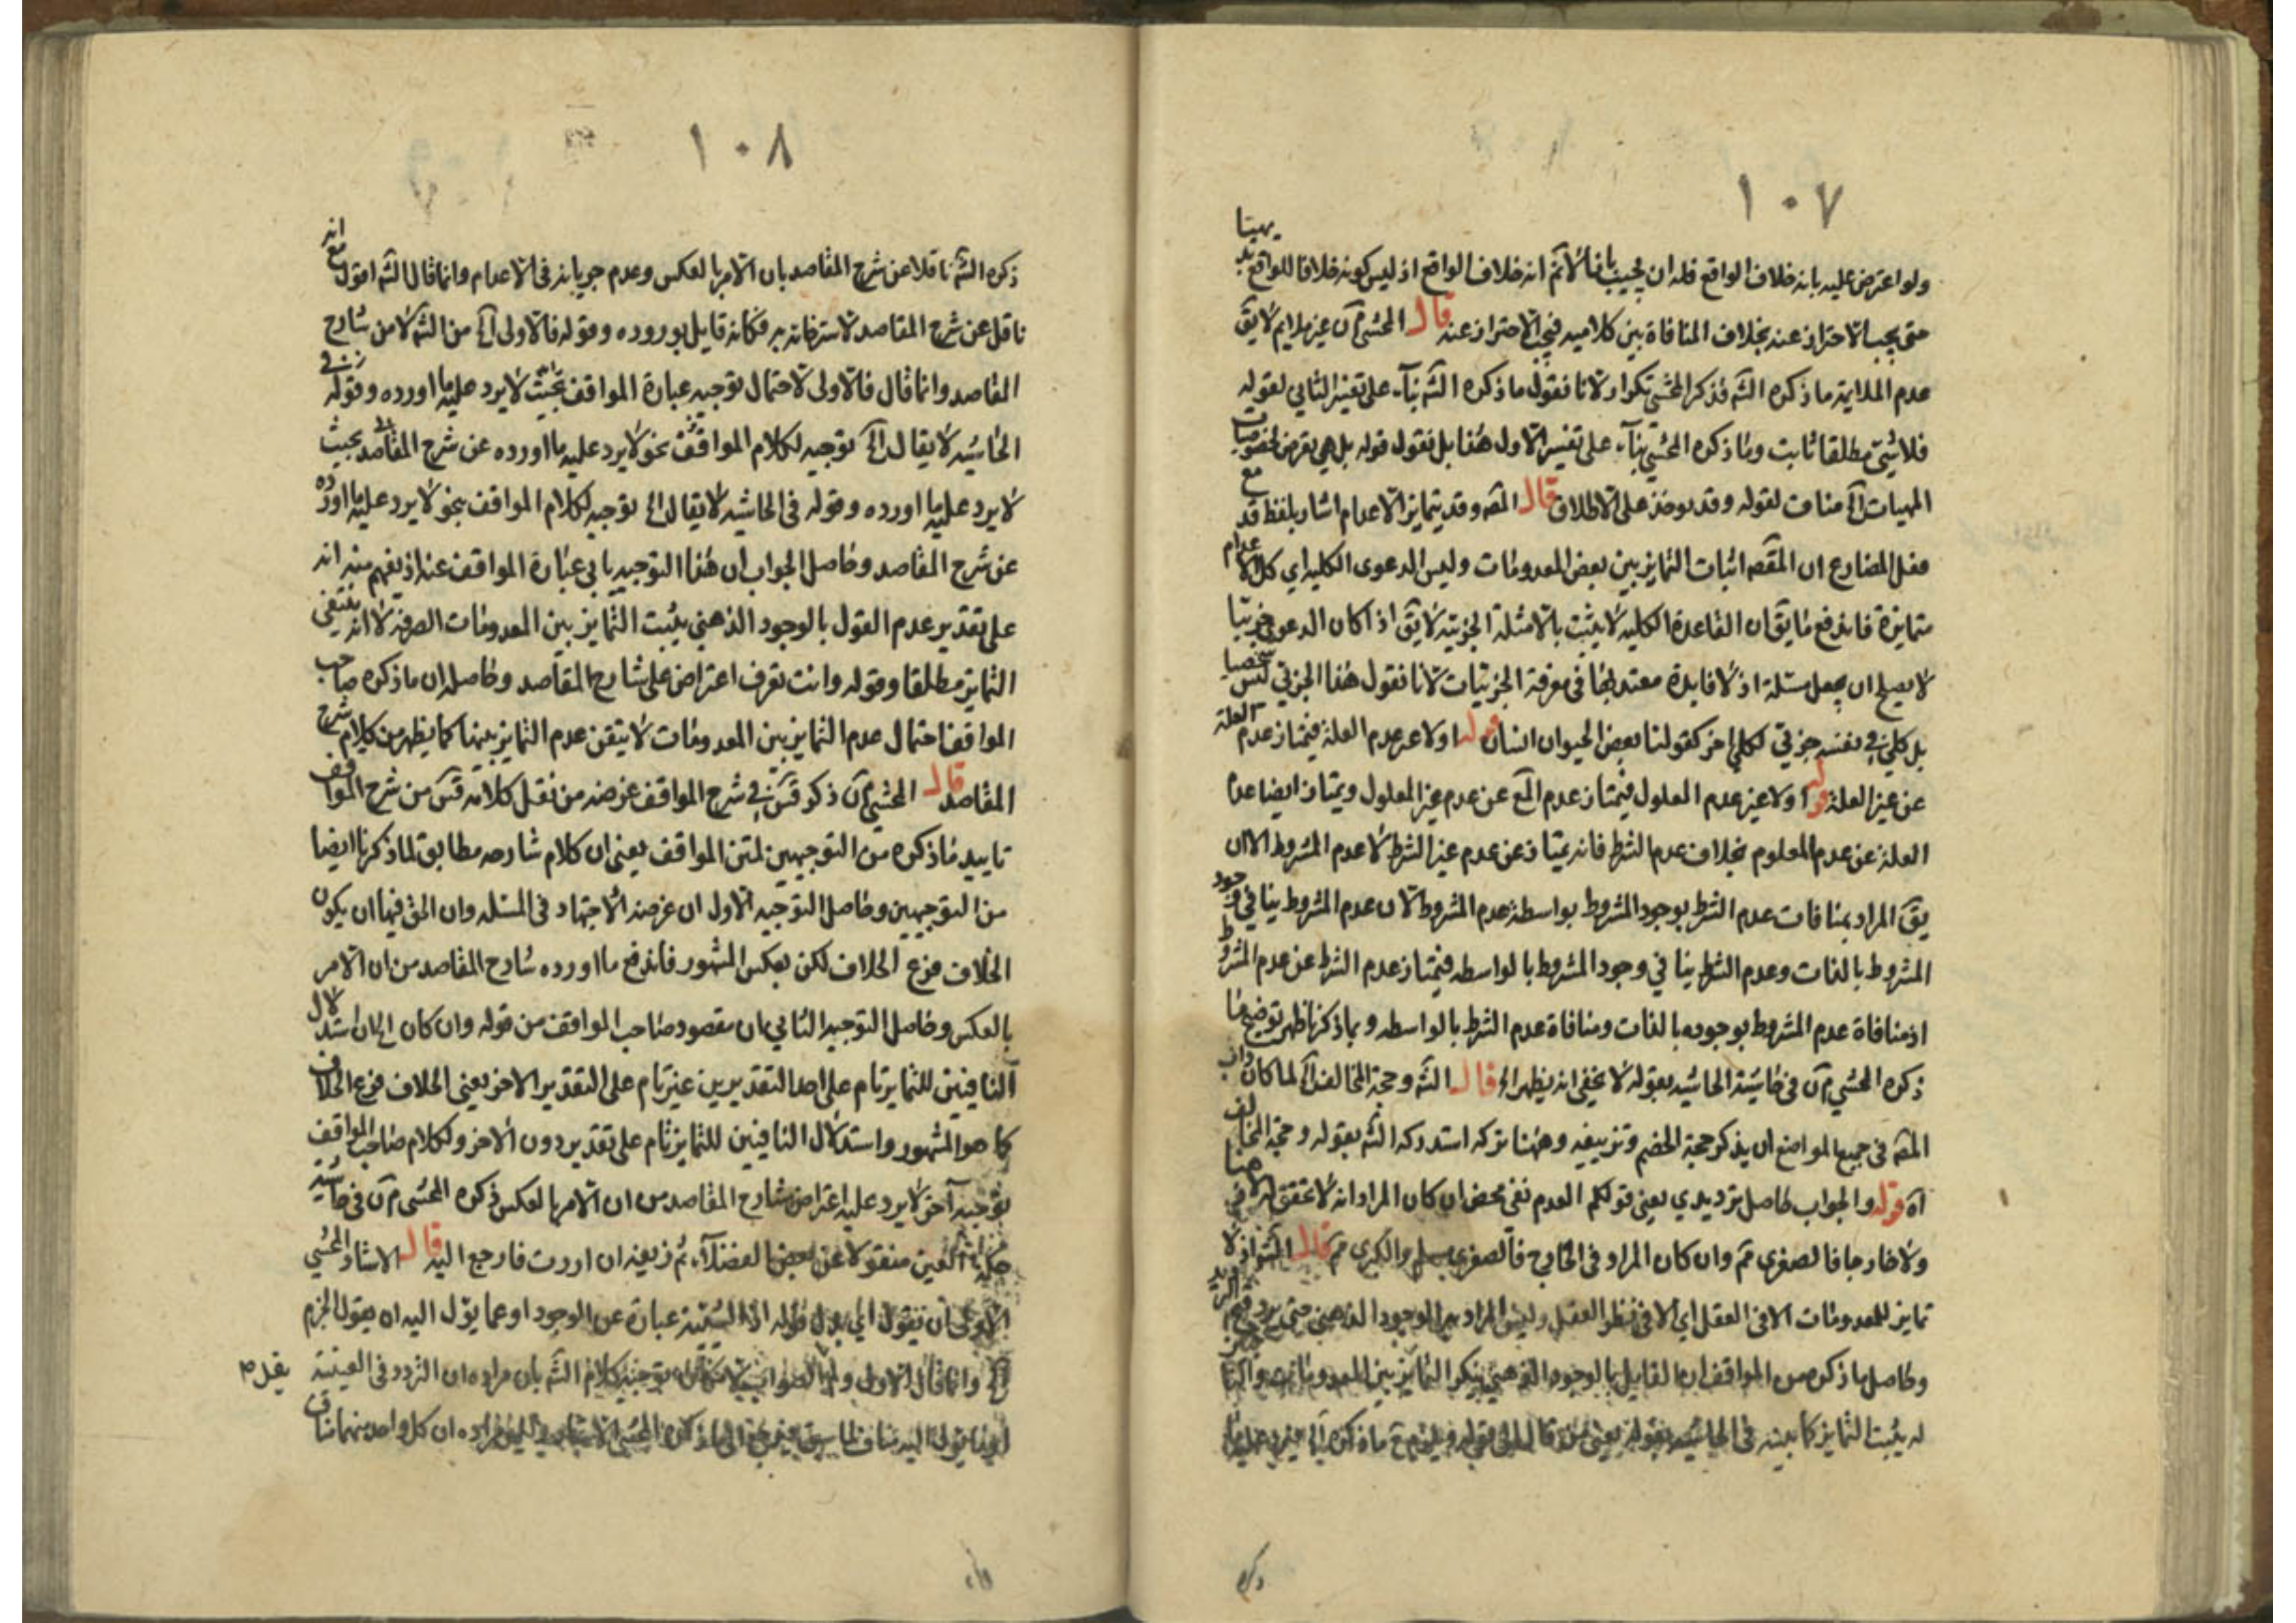 ١٠٧
ولو اعترض عليه بانه خلاف الواقع فله ان يجيب بانا لانم انه خلاف الواقع اذ ليس كونه خلافا للواقع
حتى يجب الاحتراز عنه بخلاف المنافاة بين كلاميه فيجب الاحتراز عنه قال المحشي آن غير ملايم لا يق
عدم الملايمة ما ذكره الشه فذكر المحشي تكرار لانا نقول ما ذكره الشه بناء على تفسير الثاني لقوله
فلا شئ مطلقا ثابت وما ذكره المحشي بناء على تفسير الاول هذا بل نقول قوله بل هي تعرض لخصوصيات
المهيات اآ مناف لقوله وقد يوخذ على الاطلاق قال المصه وقد يتمايز الاعدام اشار بلفظ قد مع
فعل المضارع ان المقصه اثبات التمايز بين بعض المعدومات وليس الدعوى الكلية اي كل الاعدام
متمايزة فاندفع ما يق ان القاعدة الكلية لا يثبت بالامثلة الجزيية لا يق اذا كان الدعوى جزييا
لا يصلح ان يجعل مسئلة اذ لا فايدة معتد بها في معرفة الجزئيات لانا نقول هذا الجزئي ليس شخصيا
بل كلي في نفسه جزئي لكلي اخر كقولنا بعض الحيوان انسان قوله اولا غير عدم العلة فيمتاز عدم العلة
عن غير العلة قوله اولا غير عدم المعلول فيمتاز عدم المع عن عدم غير المعلول ويمتاز ايضا عدم
العلة عن عدم المعلوم بخلاف عدم الشرط فانه يمتاز عن عدم غير الشرط لا عدم المشروط الا ان
يق المراد بمنافات عدم الشرط بوجود المشروط بواسطة عدم المشروط لان عدم المشروط ينافي وجود
المشروط بالذات وعدم الشرط ينافي وجود المشروط بالواسطه فيمتاز عدم الشرط عن عدم المشروط
اذ منافاة عدم المشروط بوجوده بالذات ومنافاة عدم الشرط بالواسطه وبما ذكرنا ظهر توضيح ما
ذكره المحشي آن في حاشية الحاشيه بقوله لا يخفى انه يظهر اآ قال الشه وحجة المخالف اآ لما كان داب
المصه في جميع المواضع ان يذكر حجة الخصم وتزييفه وههنا تركه استدركه الشه بقوله وحجة المخالف
اه قوله والجواب حاصل ترديدي يعني قولكم العدم نفي محض ان كان المراد انه لا تحقق له لا ذهنا
ولا خارجا فالصغرى مم وان كان المراد في الخارج فالصغرى مسلم والكبرى مم قال الشه اذ لا
تمايز للمعدومات الا في العقل اي الا في نظر العقل وليس المراد به الوجود الذهني حتى يرد
وحاصل ما ذكره من المواقف ان القايل بالوجود الذهني ينكر التمايز بين المعدومات
له يثبت التمايز كما بينه في الحاشيه بقوله يعني
١٠٨
ذكره الشه ناقلا عن شرح المقاصد بان الامر بالعكس وعدم جريانه في الاعدام وانما قال الشه اقول مع انه
ناقل عن شرح المقاصد لاسترضائه به فكانه قايل بوروده وقوله فالاولى اآ من الشه لا من شارح
المقاصد وانما قال فالاولى لاحتمال توجيه عبارة المواقف بحيث لا يرد عليه ما اورده وقوله في
الحاشيه لا يقال اآ توجيه لكلام المواقف بنحو لا يرد عليه ما اورده عن شرح المقاصد بحيث
لا يرد عليه ما اورده وقوله في الحاشيه لا يقال اآ توجيه لكلام المواقف بنحو لا يرد عليه ما اورده
عن شرح المقاصد وحاصل الجواب ان هذا التوجيه يابى عبارة المواقف عنه اذ يفهم منه انه
على تقدير عدم القول بالوجود الذهني يثبت التمايز بين المعدومات الصرفة لا انه ينتفى
التمايز مطلقا وقوله وانت تعرف اعتراض على شارح المقاصد وحاصله ان ما ذكره صاحب
المواقف احتمال عدم التمايز بين المعدومات لا تيقن عدم التمايز بينهما كما يظهر من كلام شرح
المقاصد قال المحشي آن ذكر قس في شرح المواقف غرضه من نقل كلامه قس من شرح المواقف
تاييد ما ذكره من التوجيهين لمتن المواقف يعني ان كلام شارحه مطابق لما ذكرنا ايضا
من التوجيهين وحاصل التوجيه الاول ان غرضه الاجتهاد في المسئله وان الحق فيها ان يكون
الخلاف فرع الخلاف لكن بعكس المشهور فاندفع ما اورده شارح المقاصد من ان الامر
بالعكس وحاصل التوجيه الثاني ان مقصود صاحب المواقف من قوله وان كان اآ ان استدلال
النافيين للتمايز تام على احد التقديرين غير تام على التقدير الاخر يعني الخلاف فرع الخلاف
كما هو المشهور واستدلال النافيين للتمايز تام على تقدير دون الاخر ولكلام صاحب المواقف
توجيه آخر لا يرد عليه اعتراض شارح المقاصد من ان الامر بالعكس ذكره المحشي آن في حاشيه
حكمة العين منقولا عن بعض الفضلاء ثم زيفه ان اردت فارجع اليه قال الاستاد المحشي
الاولى ان نقول اي بدل قوله اذ الشيئية عبارة عن الوجود او عما يؤل اليه اه يقول الجزم
وانما قال الاولى ولم يقل الصواب لامكان توجيه كلام الشه بان مراده ان التردد في العينية
ان كل واحد منهما مناف